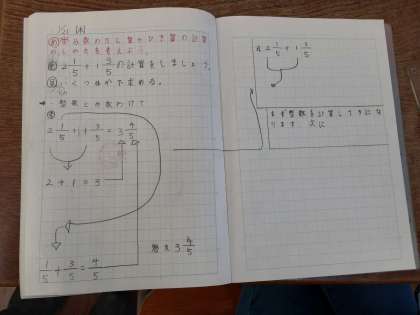 1/21 (木)
め 帯分数のたし算やひき算の計算
のしかたを考えよう。
問 2 1/5 + 1 3/5 の計算をしましょう。
見 いくつ分かで求める。
整数と分数わけて
2 1/5 + 1 3/5 = 3 4/5
2 + 1 = 3
1/5 + 3/5 = 4/5
答え 3 4/5
2 1/5 + 1 3/5
まず整数を計算して3にな
ります。次に